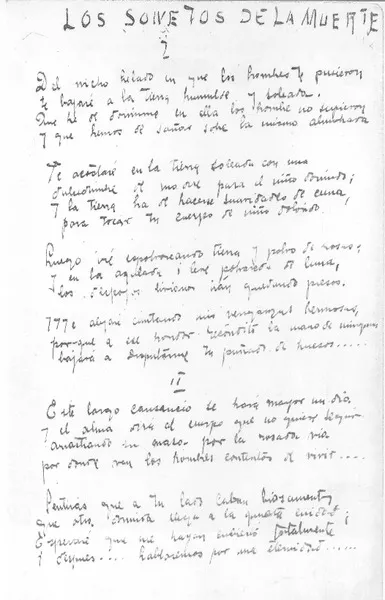 LOS SONETOS DE LA MUERTE
I
Del nicho helado en que los hombres te pusieron
te bajaré a la tierra humilde y soleada.
Que he de dormirme en ella los hombre no supieron
y que hemos de soñar sobre la misma almohada
Te acostaré en la tierra soleada con una
dulcedumbre de madre para el niño dormido;
y la tierra ha de hacerse suavidades de cuna,
para tocar tu cuerpo de niño dolorido.
Luego iré espolvoreando tierra y polvo de rosas;
y en la azulada i leve polvareda de luna,
los despojos livianos irán quedando presos.
Me alejaré cantando mis venganzas hermosas,
porque a ese hondor recóndito la mano de ninguna
bajará a disputarme tu puñado de huesos.....
II
Este largo cansancio se hará mayor un día
y el alma dirá al cuerpo que no quiere seguir
arrastrando su masa por la rosada vía
por donde van los hombres contentos de vivir....
Sentirás que a tu lado cavan briosamente,
que otra dormida llega a la quieta ciudad;
Esperaré que me hayan cubierto totalmente
y después.... hablaremos por una eternidad......